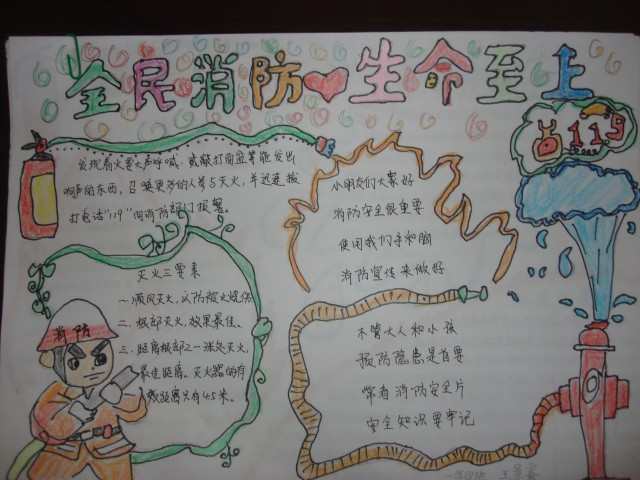 全民消防 生命至上
119
发现着火要大声呼喊、或敲打脸盆等能发出
响声的东西，召唤更多的人参与灭火，并迅速拨
打电话"119"向消防部门报警。
小朋友们大家好
消防安全很重要
使用我们手和脑
消防宣传来做好
灭火三要素
一、顺风灭火，以防被火烧伤
二、根部灭火，效果最佳。
三、距离根部2—3米处灭火，
最佳距离。灭火器的有
效距离只有4.5米。
消防
不管大人和小孩
预防隐患是首要
常看消防安全片
安全知识要牢记